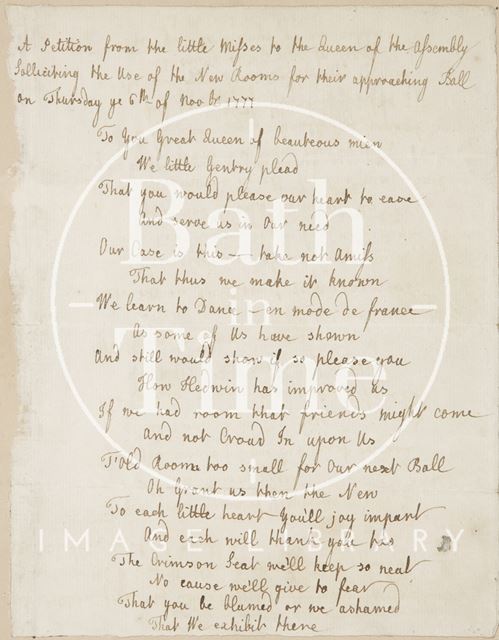 A Petition from the little Misses to the Queen of the Assembly
Solliciting the Use of the New Rooms for their approaching Ball
on Thursday ye 6th of Novbr 1777
To You Great Queen of beauteous mien
We little Gentry plead
That you would please our heart to ease
And serve us in Our need
Our Case is this - take not Amiss
That thus we make it known
We learn to Dance - en mode de france
As some of Us have shown
And still would show if so please you
How Hedwin has improved us
If we had room that friends might come
And not Croud In upon Us
T'Old Rooms too small for Our next Ball
Oh Grant us then the New
To each little heart You'll joy impart
And each will thank you
The Crimson Seat we'll keep so neat
No cause we'll give to fear
That you be blamed or we ashamed
That We exhibit there
Bath
in
Time
IMAGE LIBRARY